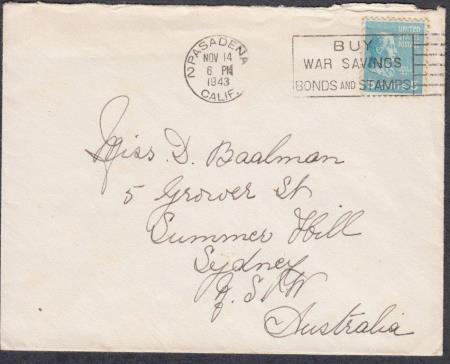 PASADENA
NOV 14
6 PM
1943
CALIF.
BUY
WAR SAVINGS
BONDS AND STAMPS
UNITED
Miss D. Baalman
5 Grower St
Summer Hill
Sydney
N.S.W
Australia